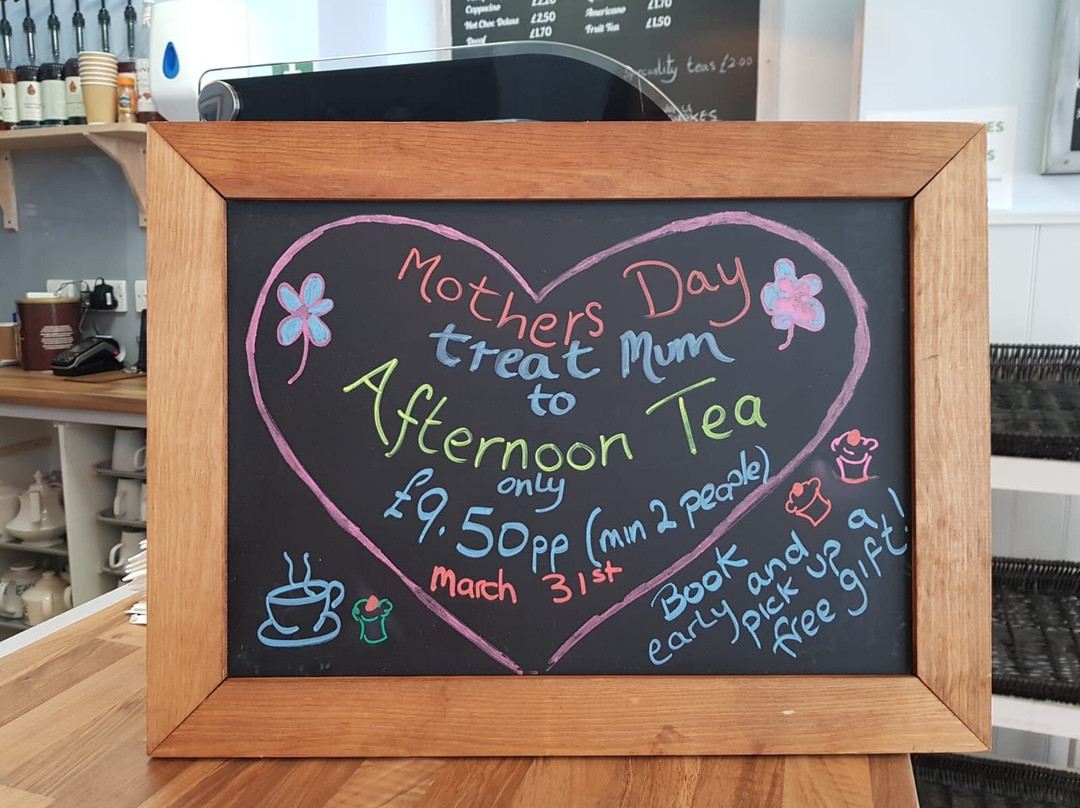 Cappucino
£2.20
Hot Choc Deluxe
£2.50
Decaf
£1.70
Americano
£1.70
Fruit Tea
£1.50
Speciality teas £2.00
Mothers Day
treat Mum
to
Afternoon Tea
only
£9.50pp (min 2 people)
March 31st
Book
early and
pick up a
free gift!